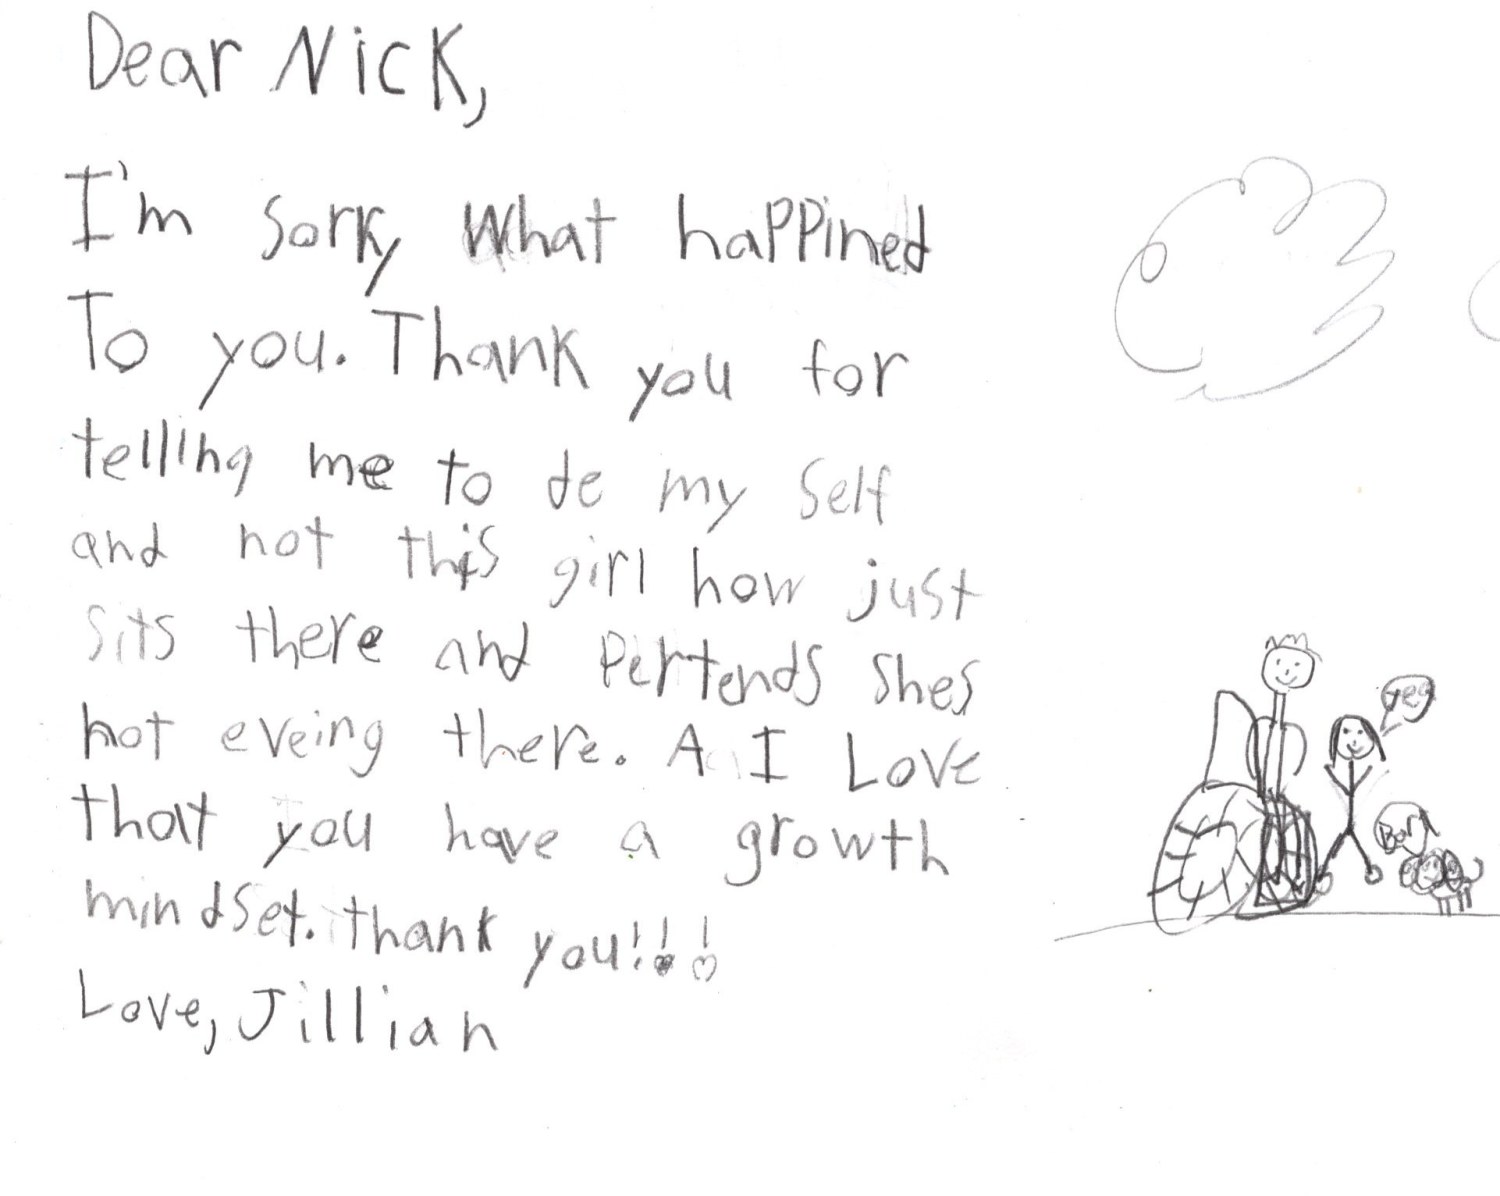 Dear Nick,
I'm sorry what happined
To you. Thank you for
telling me to de my self
and not this girl how just
sits there and Pertends shes
not eveing there. A I Love
that you have a growth
mindset. thank you!!!
Love, Jillian
yes
Bark